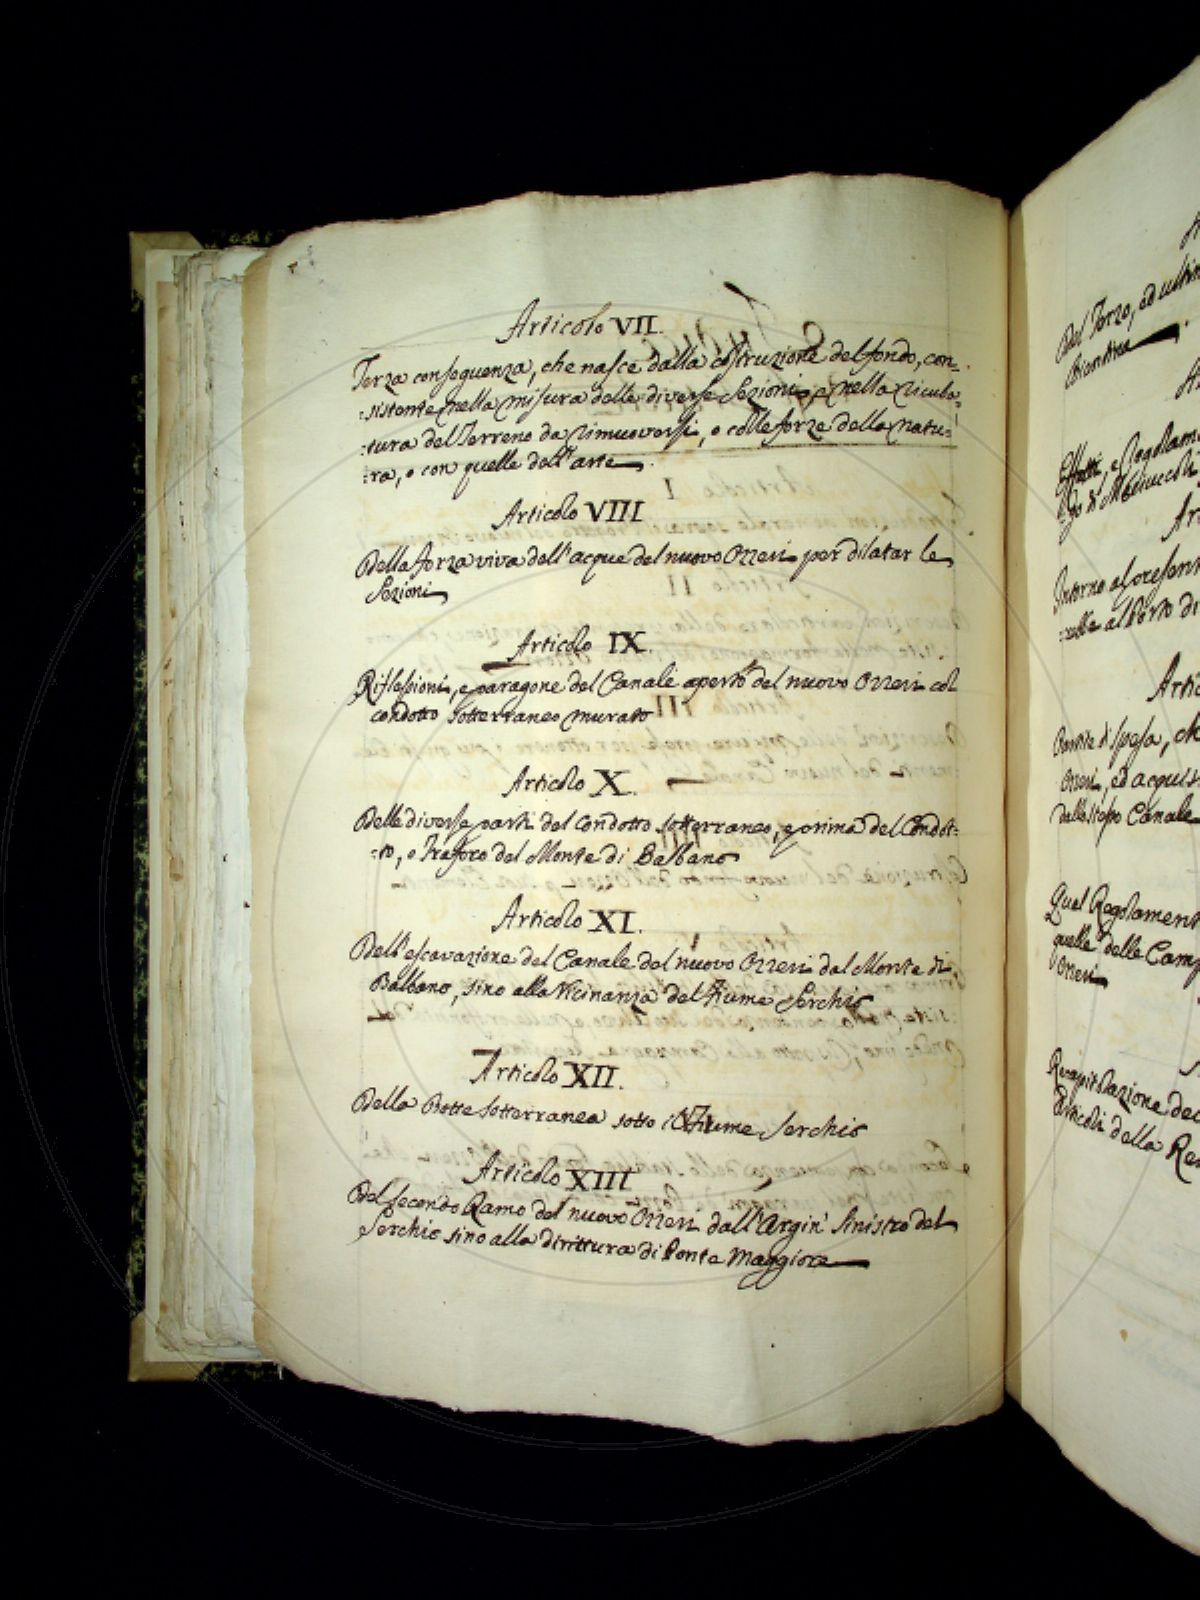 Articolo VII.
Terza conseguenza, che nasce dalla costruzione del fondo, con-
:sistente nella misura delle diverse Sezioni, e nella ricula-
:tura del Terreno da rimuoversi, o colle forze della natu-
:ra, o con quelle dell'arte
Articolo VIII
Della forza viva dell'acque del nuovo Ozzeri per dilatar le
Sezioni
Articolo IX.
Riflessioni, e paragone del Canale aperto del nuovo Ozzeri col
condotto sotterraneo murato
Articolo X.
Delle diverse parti del condotto sotterraneo, e prima del Condot-
:to, o Traforo del Monte di Balbano
Articolo XI.
Dell'escavazione del Canale del nuovo Ozzeri dal Monte di
Balbano, sino alla Vicinanza del Fiume Serchio
Articolo XII.
Della Botte sotterranea sotto il Fiume Serchio
Articolo XIII
Del secondo Ramo del nuovo Ozzeri dall'Argin' sinistro del
Serchio sino alla dirittura di Ponte Maggiore
Del Terzo, ed ultim
Bientina
Effetti, e Regolam
Intorno al presen
al Porto di
Artic
Partite di spesa, ch
Ozzeri, ed acquis
dello stesso Canale
Qual Regolament
quelle delle Camp
Ozzeri
Recapitolazione dec
Articoli della Re